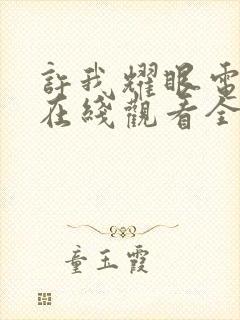 許我耀眼電
在綫觀看全
童玉霞